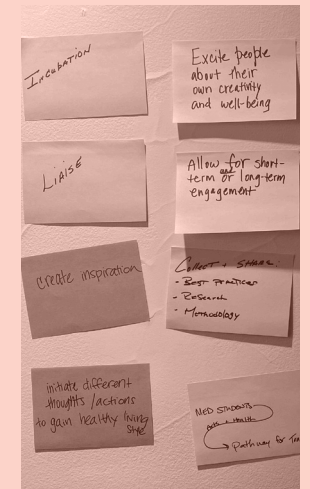 INCUBATION
LIAISE
create inspiration
initiate different
thoughts / actions
to gain healthy living
style
Excite people
about their
own creativity
and well-being
Allow for short-
term and/or long-term
engagement
COLLECT + SHARE:
- BEST PRACTICES
- RESEARCH
- METHODOLOGY
MED STUDENTS
ARTS + HEALTH
→ Pathway for